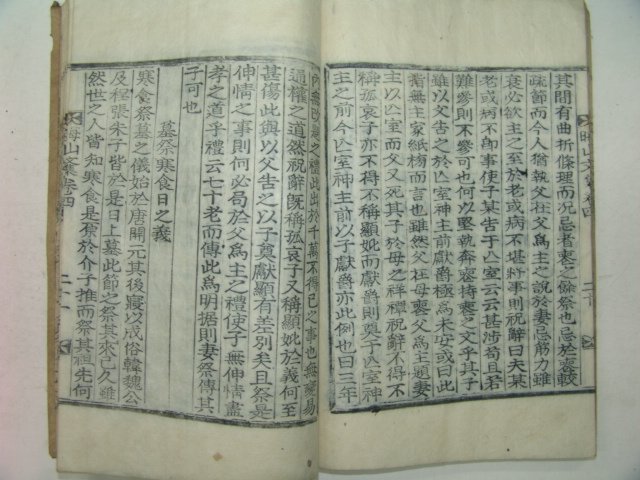 其間有曲折條理而況忌者喪之餘祭也忌於喪較
疏節而今人猶執父在父爲主之說於妻忌筋力雖
衰必欲主之至於老或病不堪將事則祝辭曰夫某
老或病不卽事使子某告于亡室云云甚涉苟且若
難參則不參可也何以堅執奔喪持喪之文乎其子
雖以父告之以子奠於亡室神主前獻爵極爲未安或曰此
皆無主家紙榜而言也雖然父在母喪父爲主題妻
以亡室而父又死其子於母之祥禫祝辭不得不
稱孤哀子亦不得不稱顯妣而獻爵則奠于亡室神
主之前今以亡室神主以子獻爵亦此例也曰三年
內無改題之禮此出於千萬不得已之事也無變易
通權之道然祝辭旣稱孤哀子又稱顯妣於義何至
甚傷此與以父告之以子奠獻顯有差別矣且祭是
伸情之事則何必局於父爲主之禮使子無伸情盡
孝之道乎禮云七十老而傳此爲明据則妻祭傳其
子可也
墓祭寒食日之義
寒食祭墓之儀始於唐開元其後寢以成俗韓魏公
及程張朱子皆於是日上墓此節之祭其來已久雖
然世之人皆知寒食是原於介子推而祭其祖先何
山藁卷四